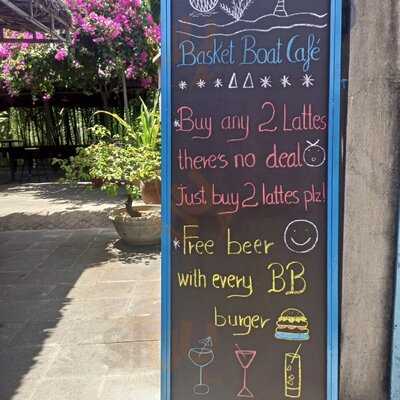 Basket Boat Café
Buy any 2 Lattes
there's no deal
Just buy 2 lattes plz!
Free beer
with every BB
burger